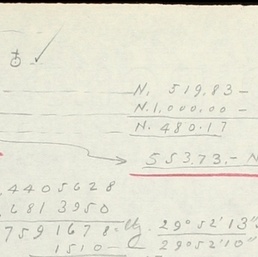 N. 519.83 -
N.1,000.00 -
N. 480.17
553.73.- N
.4405628
.6813950
7591678. 29°52'13"
1510- 29°52'10"